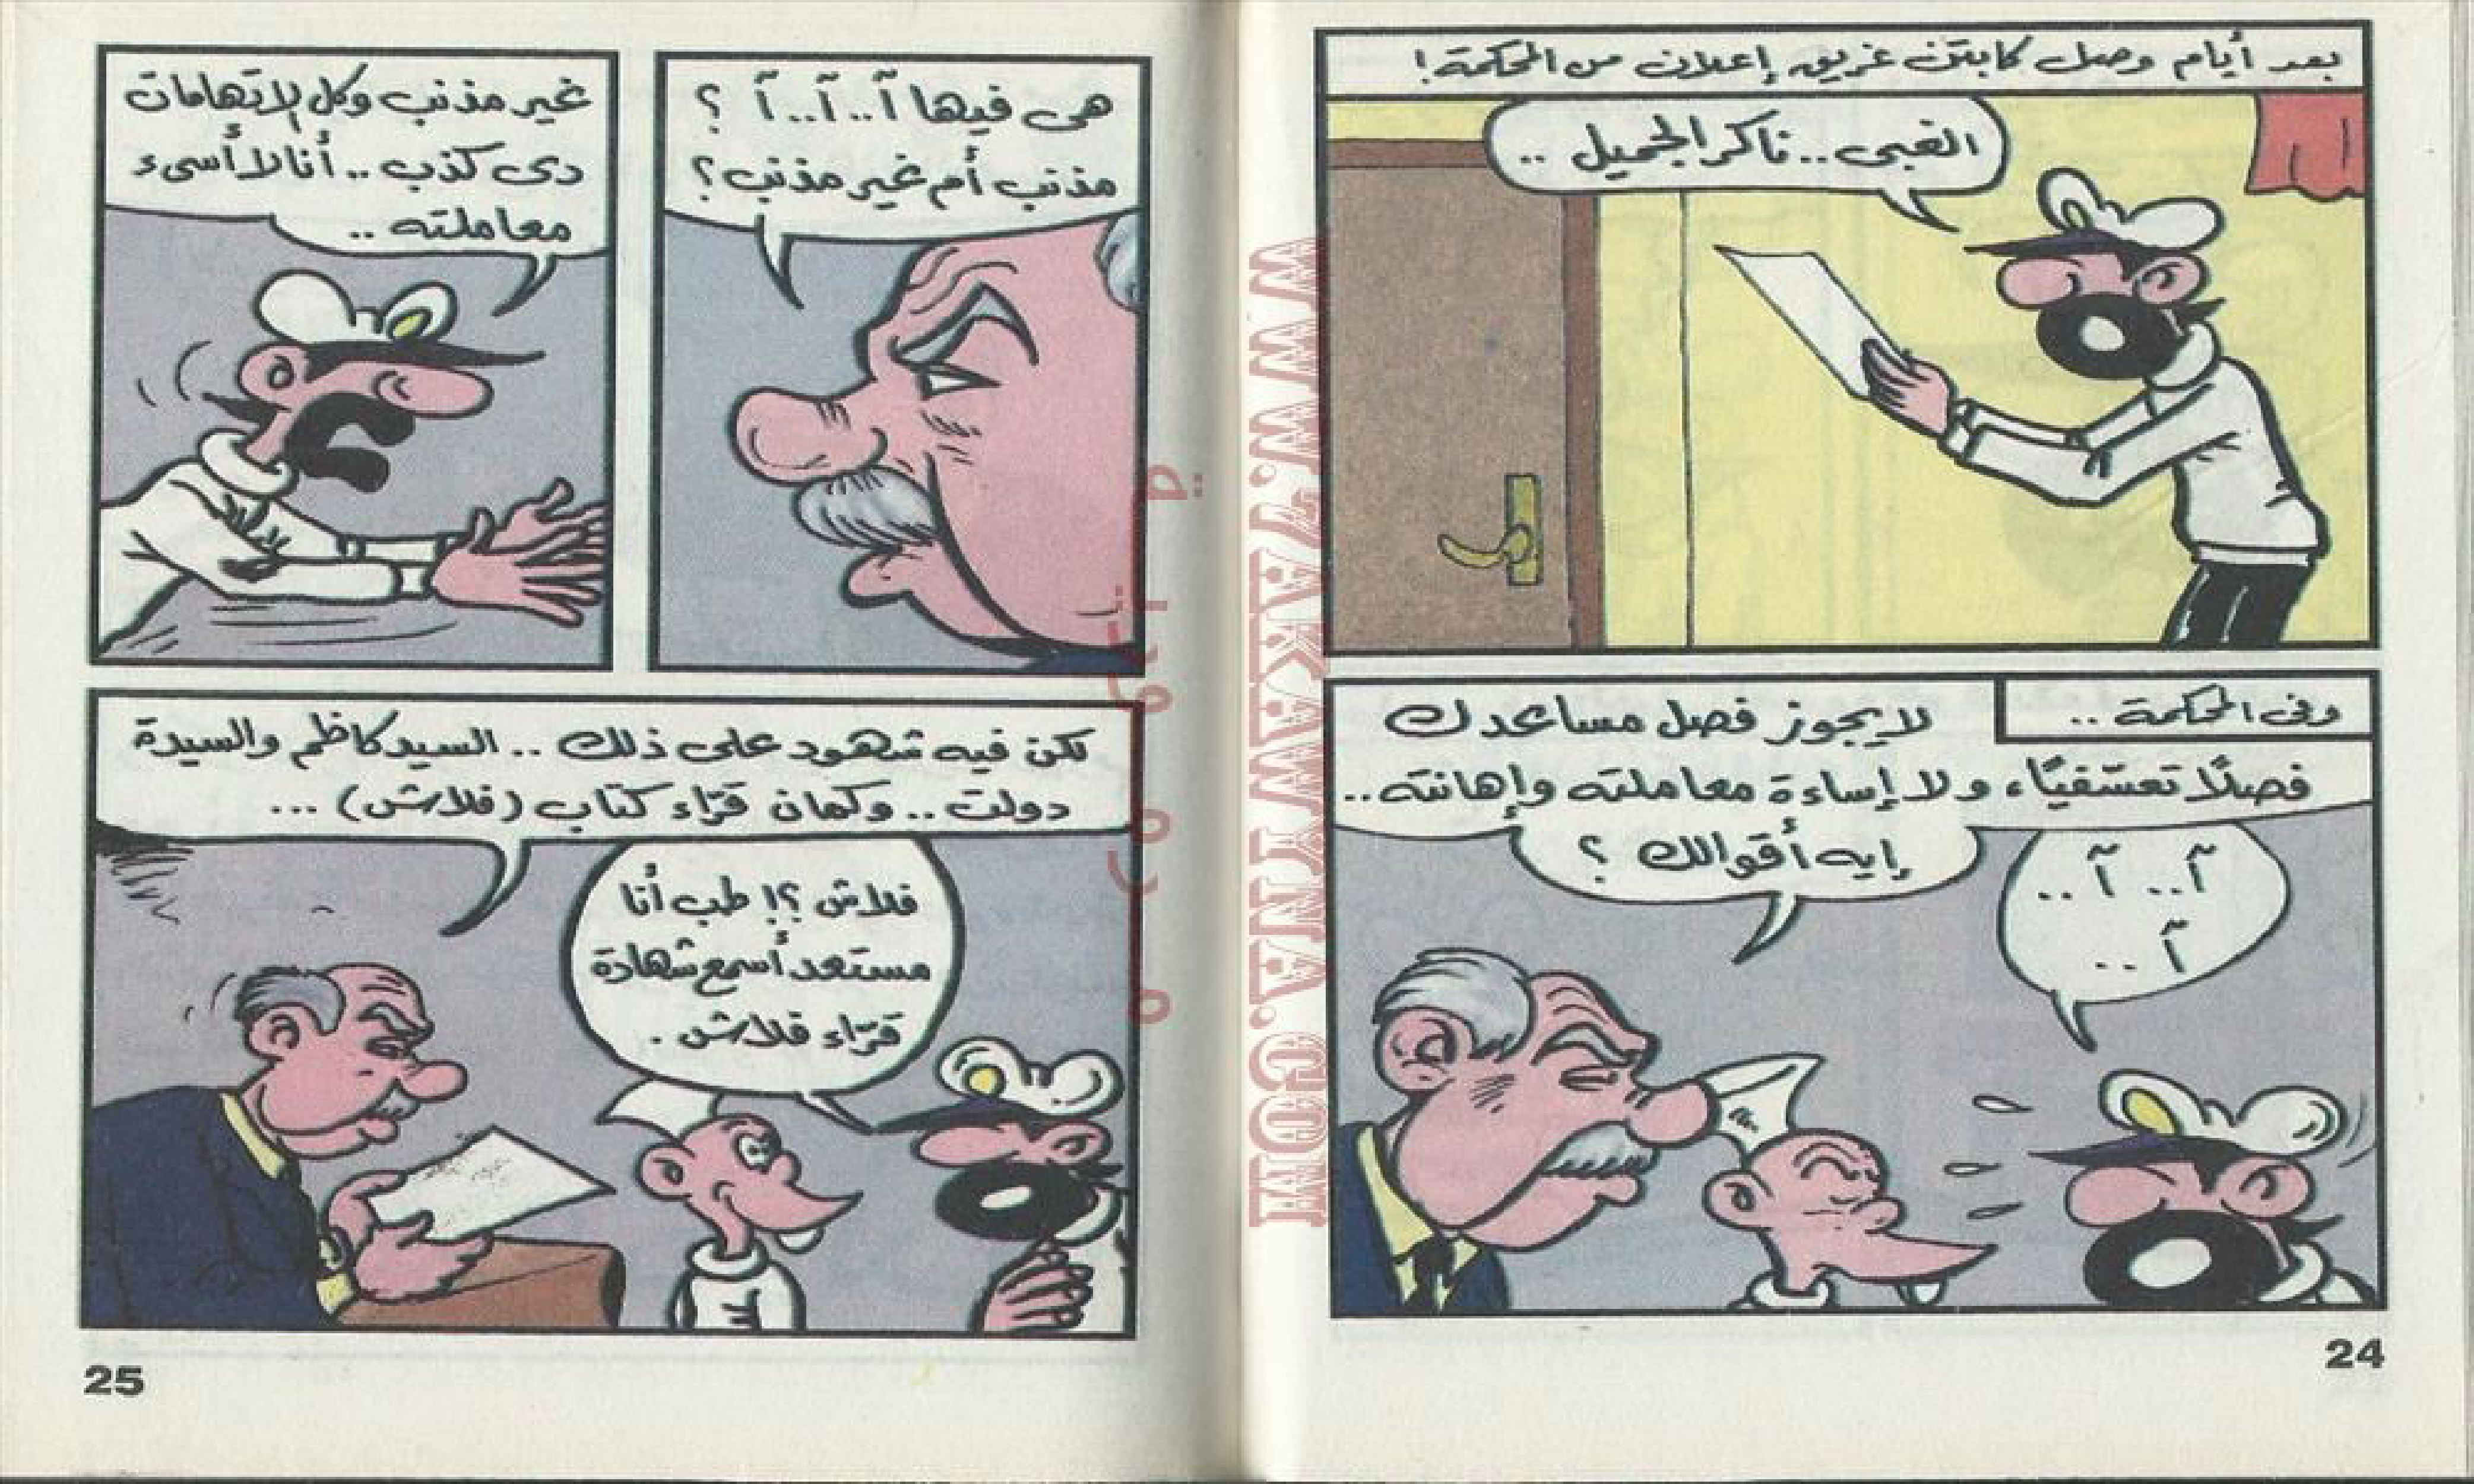 بعد أيام وصل كابتن غريق إعلان من المحكمة!
الغبى.. ناكر الجميل ..
وفى المحكمة ..
لا يجوز فصل مساعدك
فصلًا تعسّفيًا، ولا إساءة معاملته وإهانته..
إيه أقوالك ؟
آ.. آ..
آ..
24
هى فيها آ..آ..آ ؟
مذنب أم غير مذنب؟
غير مذنب وكل الإتهامات
دى كذب .. أنا لا أسىء
معاملته ..
لكن فيه شهود على ذلك .. السيد كاظم والسيدة
دولت .. وكمان قرّاء كتاب (فلاش) ...
فلاش ؟! طب أنا
مستعد أسمع شهادة
قرّاء فلاش .
25